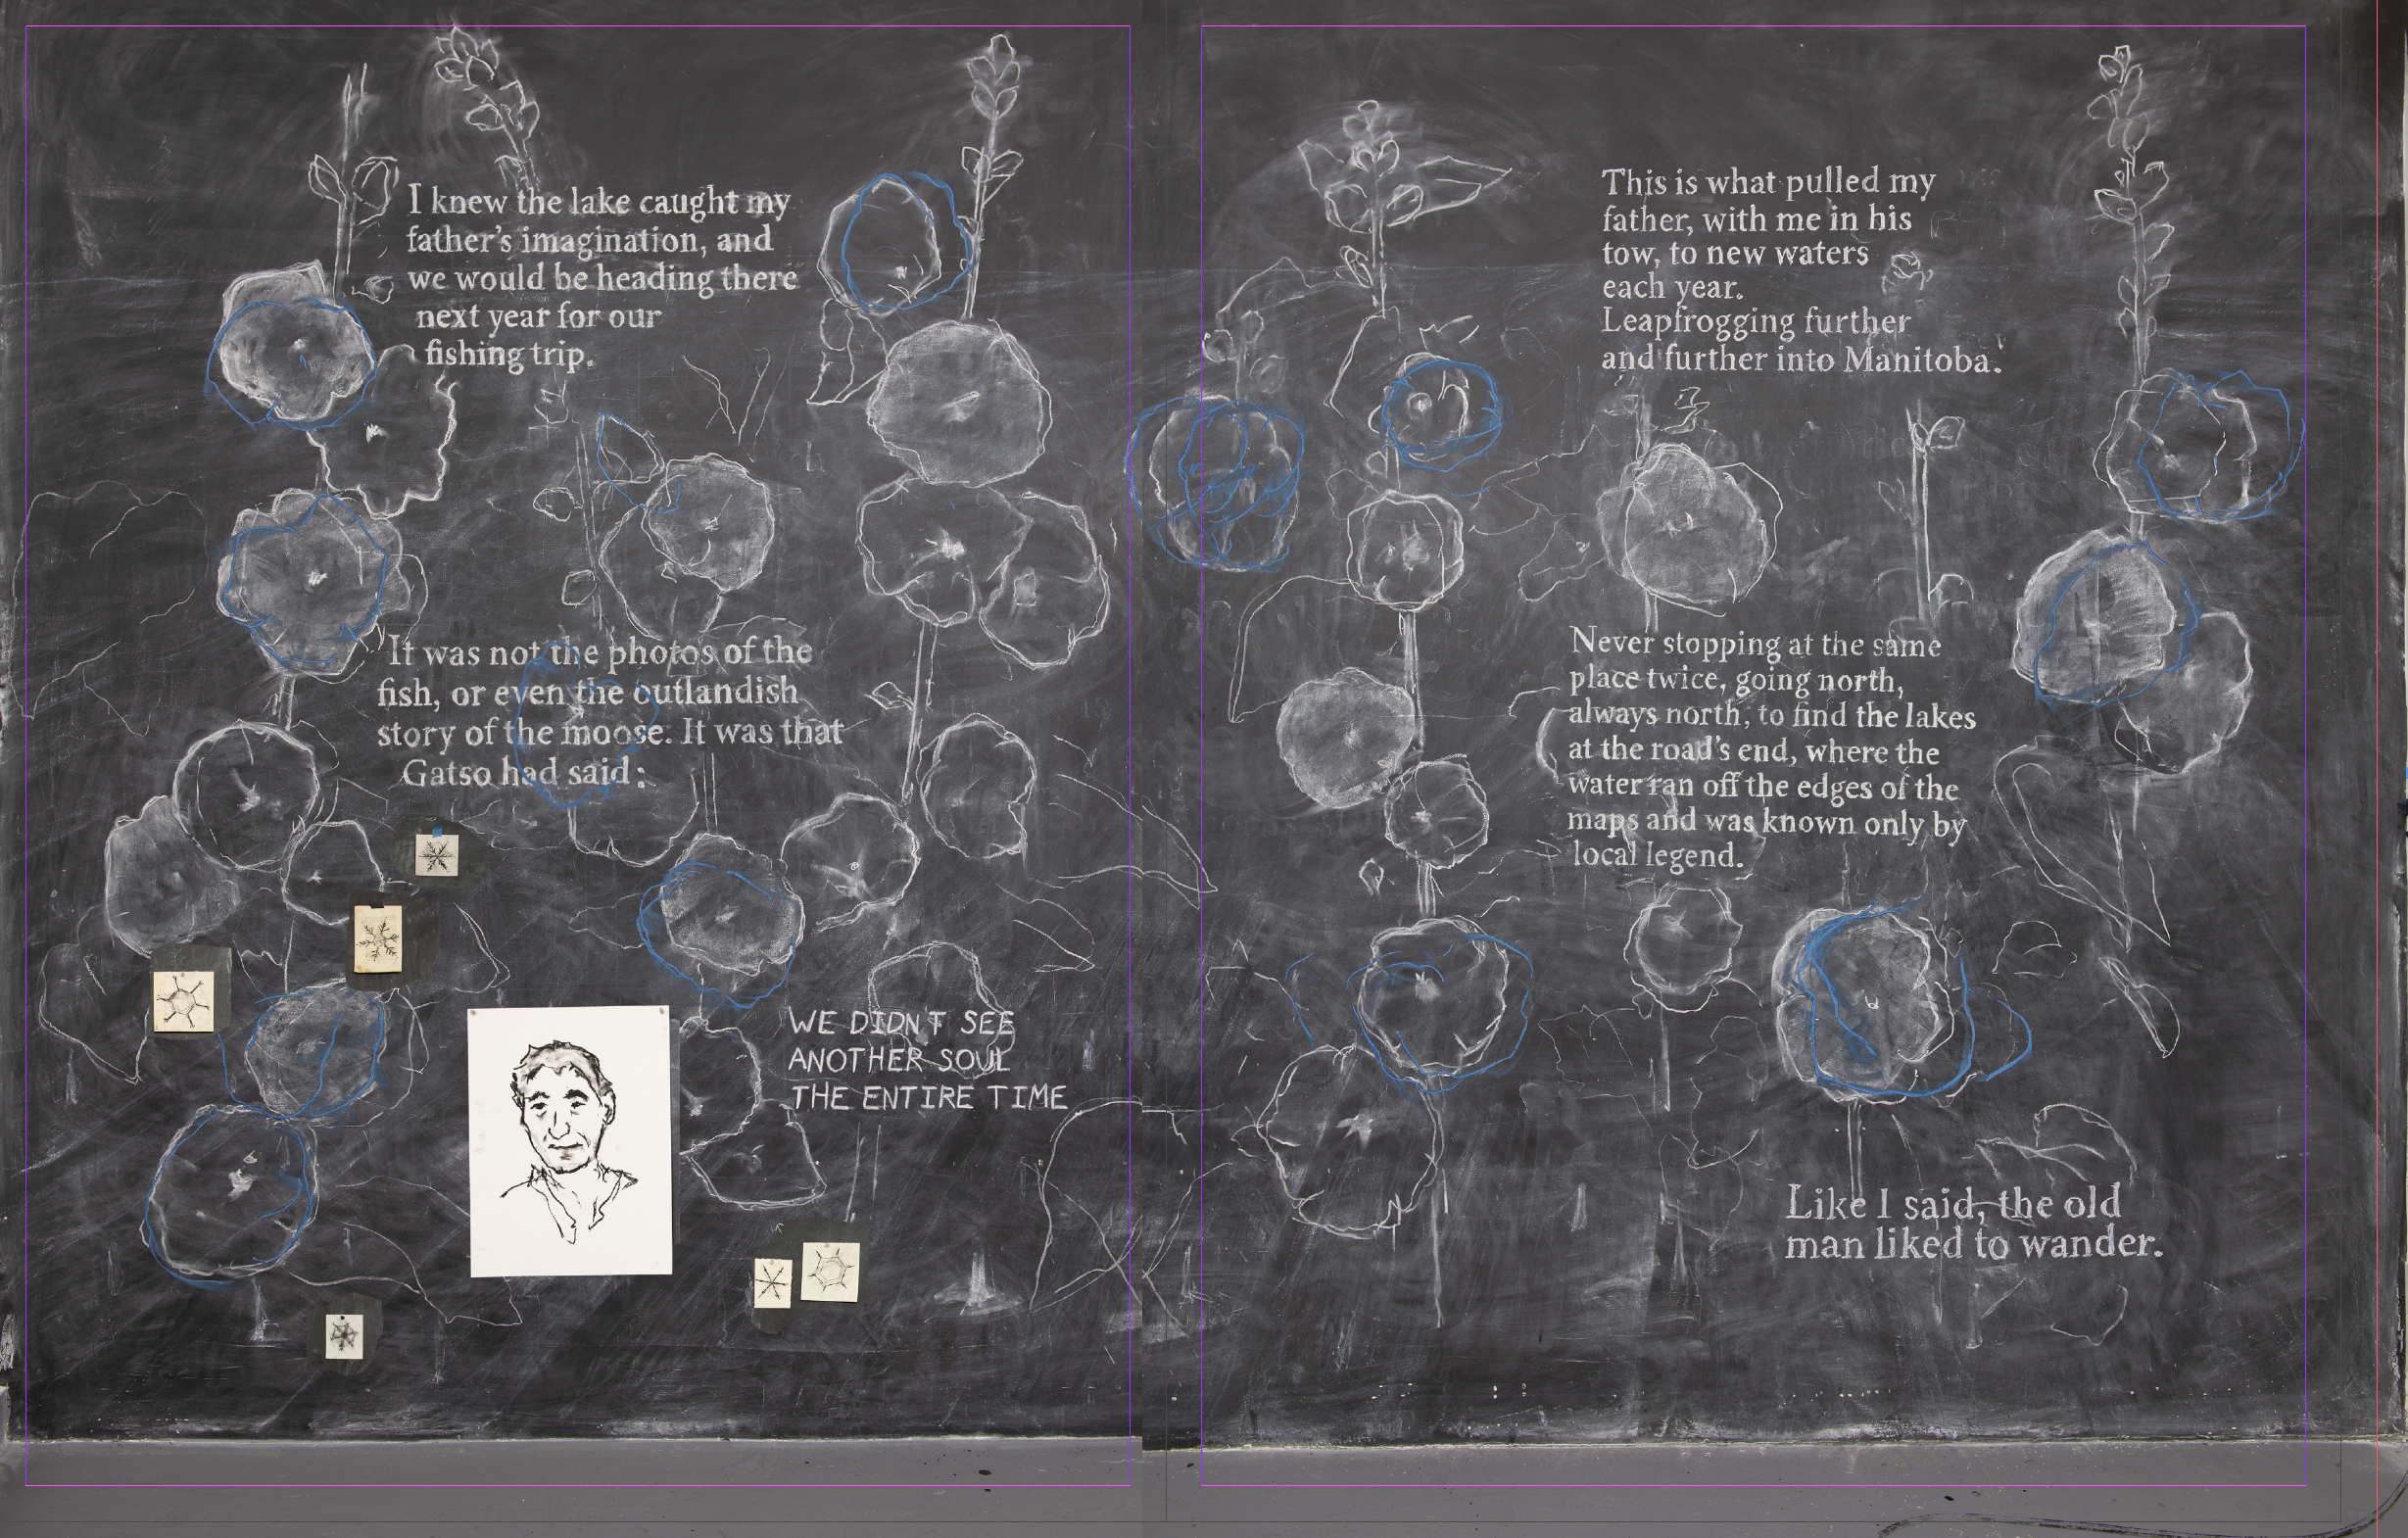 I knew the lake caught my
father's imagination, and
we would be heading there
next year for our
fishing trip.
It was not the photos of the
fish, or even the outlandish
story of the moose. It was that
Gatso had said:
WE DIDN'T SEE
ANOTHER SOUL
THE ENTIRE TIME
This is what pulled my
father, with me in his
tow, to new waters
each year.
Leapfrogging further
and further into Manitoba.
Never stopping at the same
place twice, going north,
always north, to find the lakes
at the road's end, where the
water ran off the edges of the
maps and was known only by
local legend.
Like I said, the old
man liked to wander.